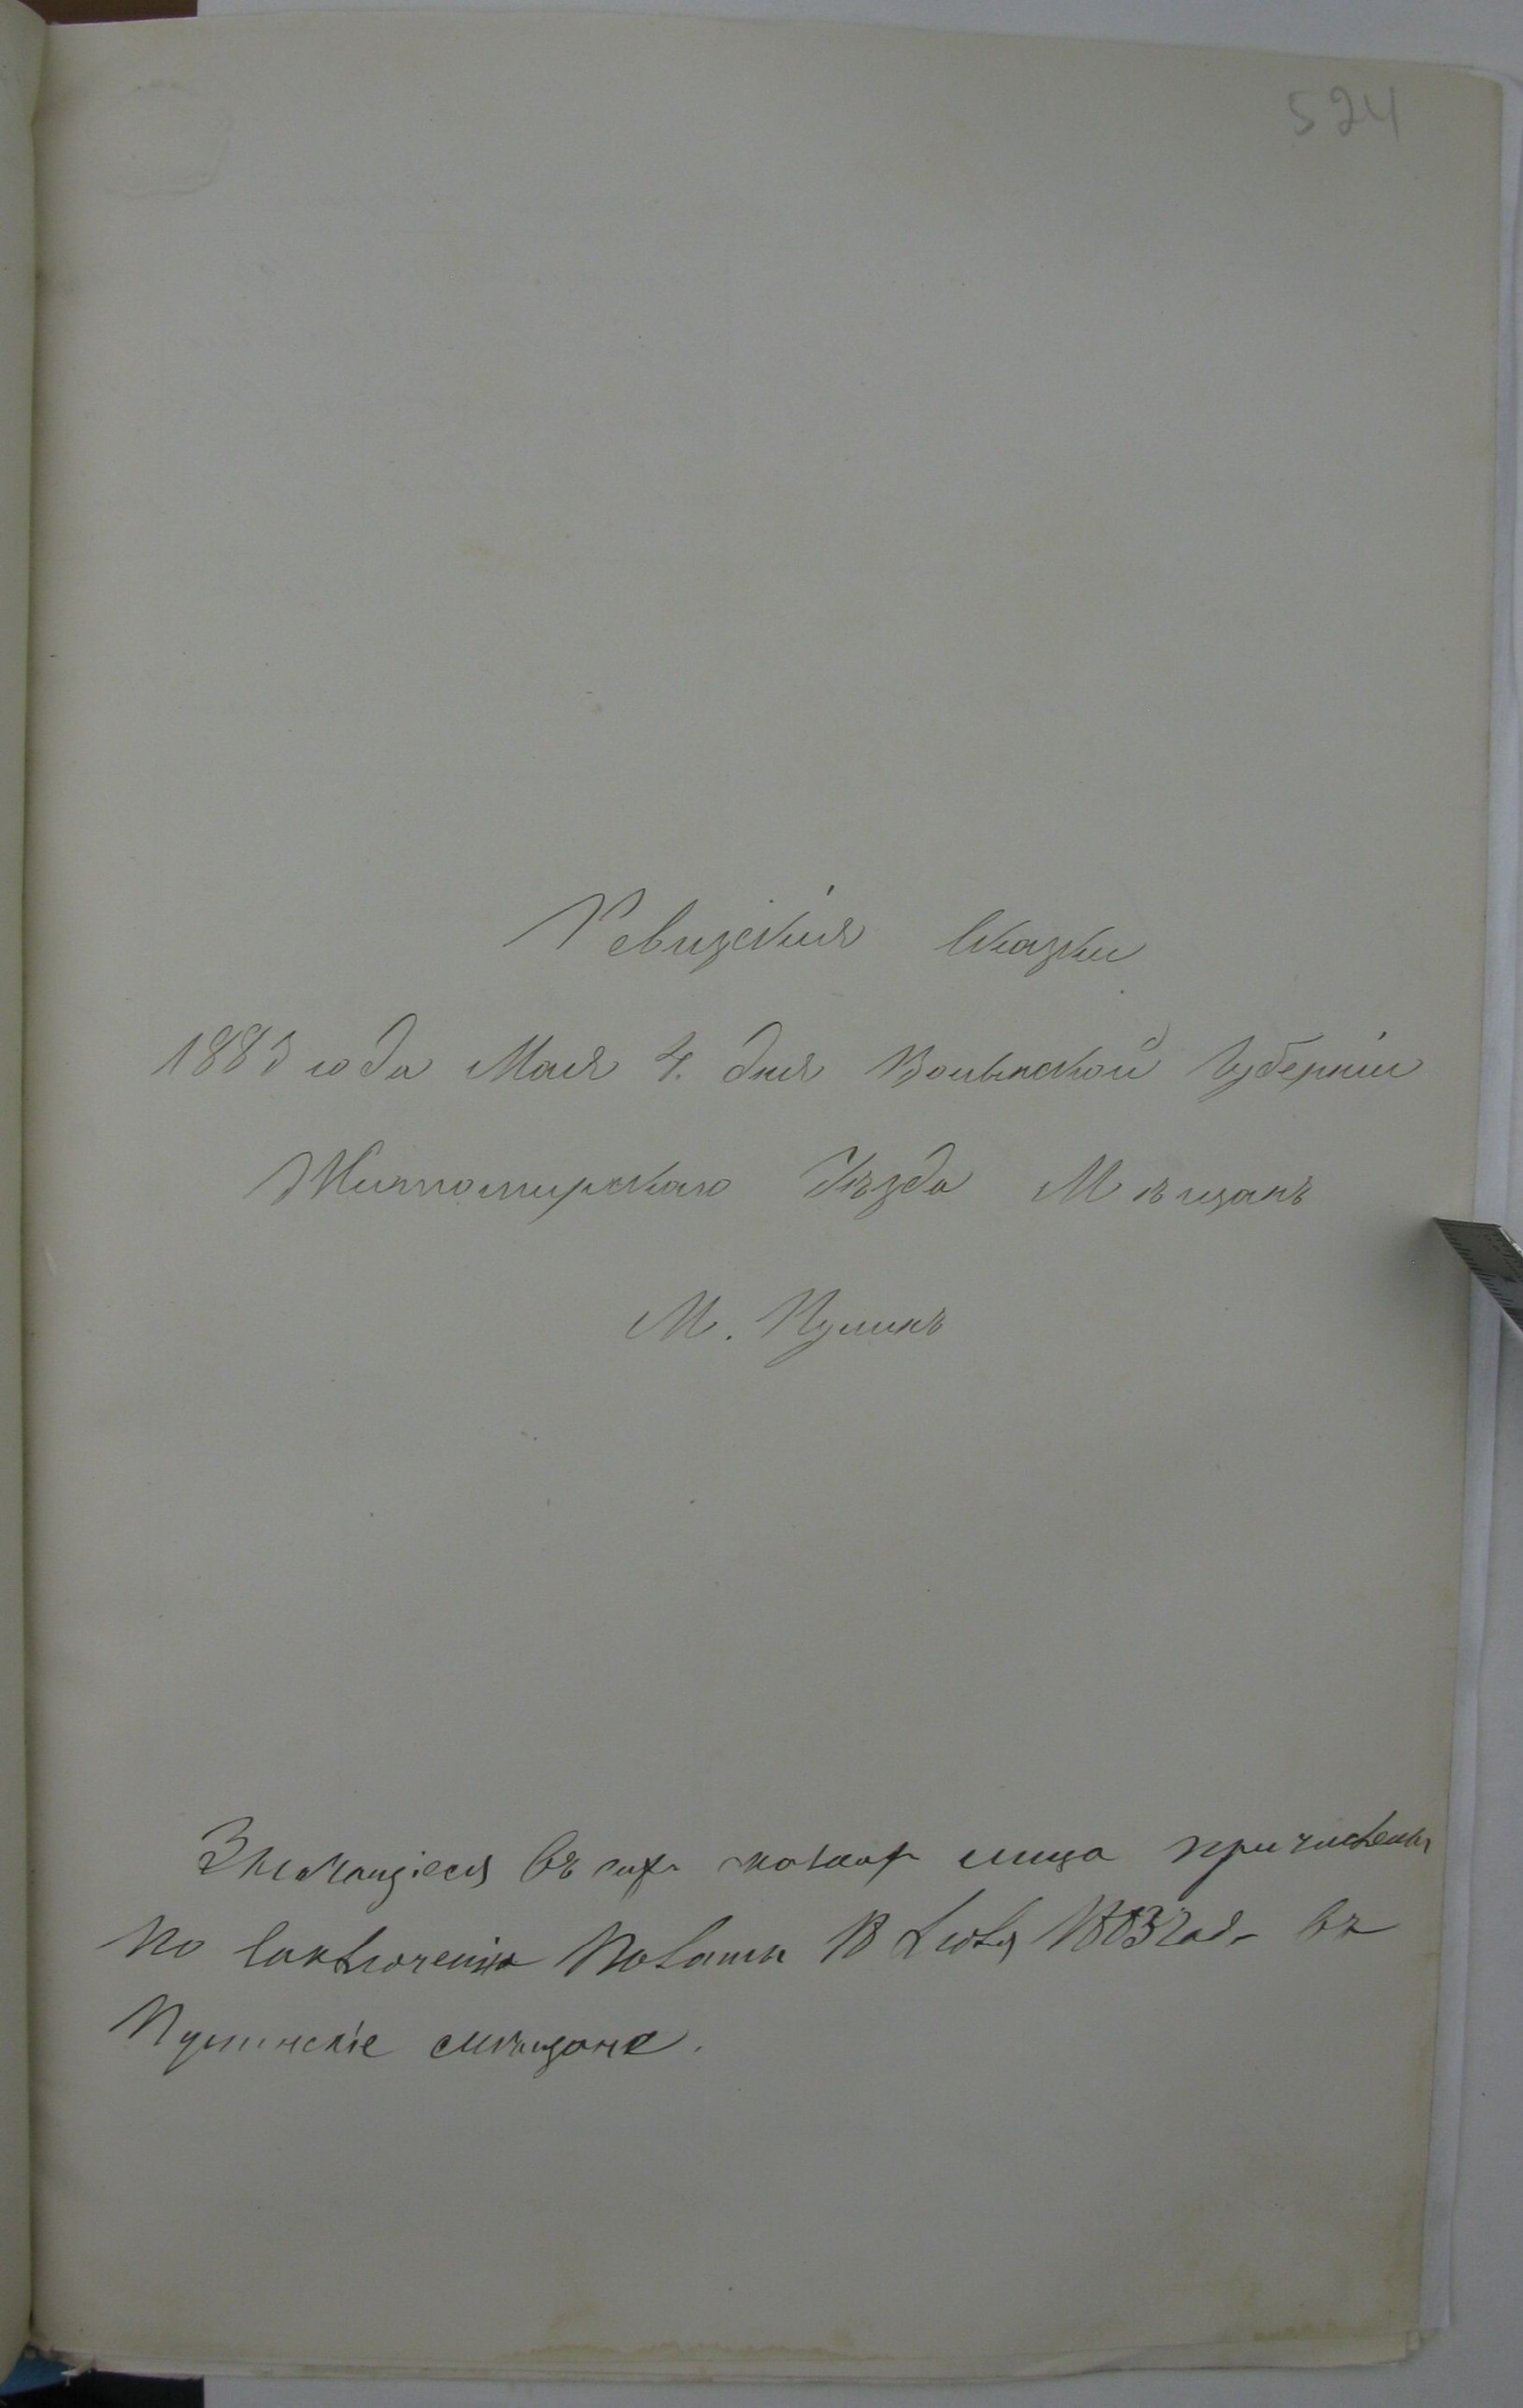 524
Ревизскія Сказки
1883 года Мая 4. дня Волынской Губерніи
Житомирскаго Уѣзда Мѣщанъ
М. Пулинъ
Значащіеся въ сихъ лица причислены
по заключенію Палаты 18 Іюля 1883 года въ
Пулинскіе мѣщане.